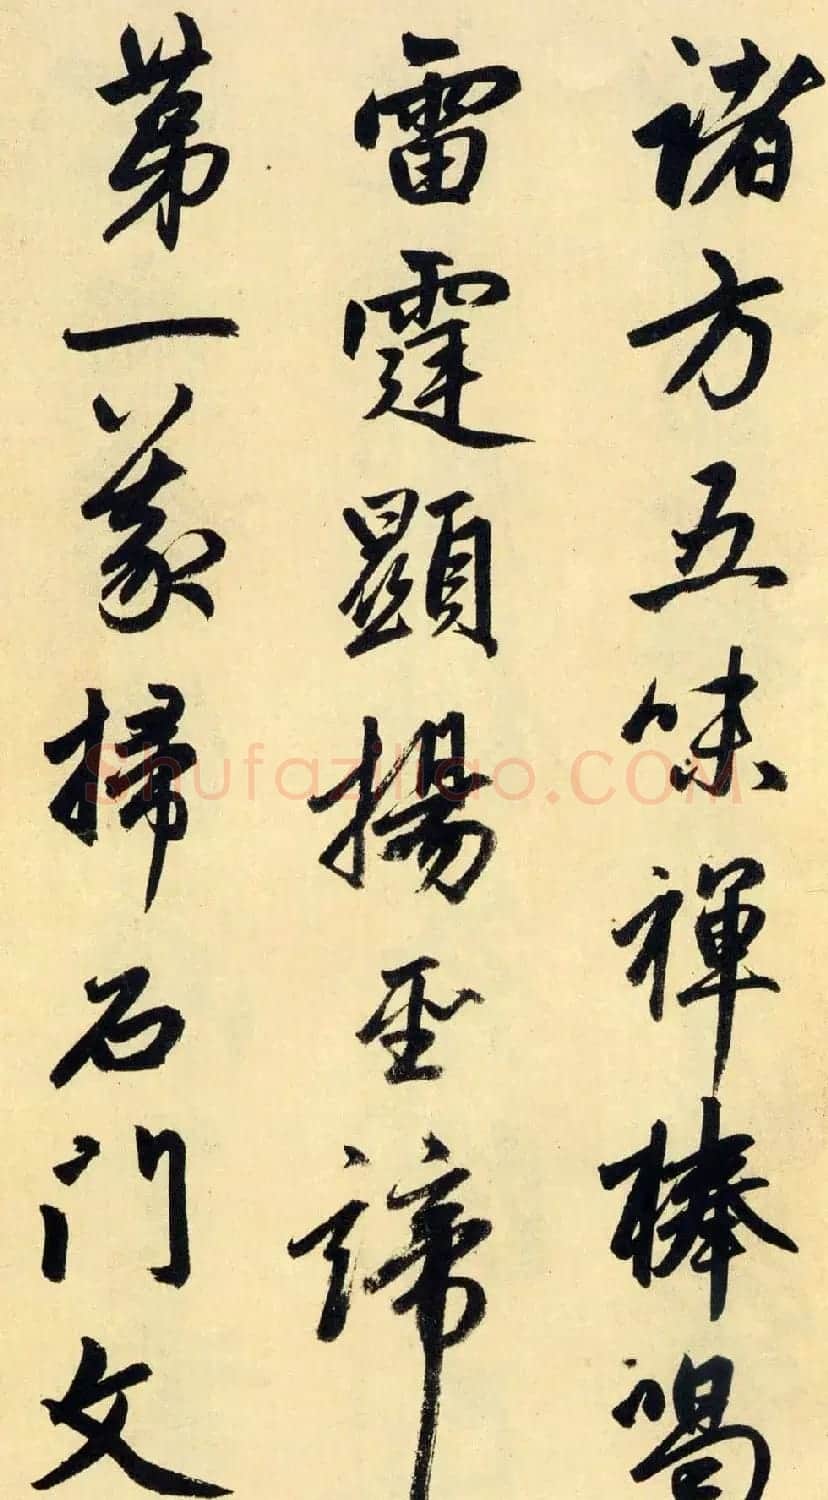 諸方五味禪棒喝
雷霆顯揚聖諦
第一義掃石門文
Shufaziliao.COM